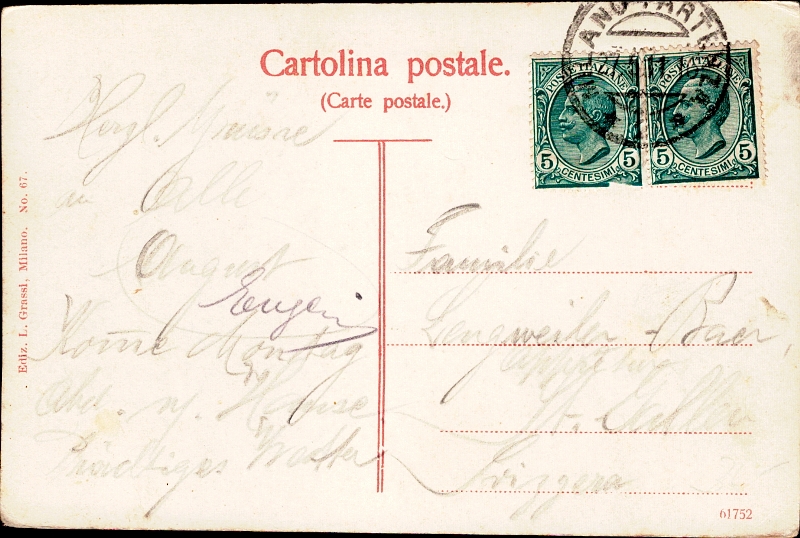 Cartolina postale.
(Carte postale.)
POSTE ITALIANE
5 CENTESIMI 5
POSTE ITALIANE
5 CENTESIMI 5
Herzl. Grüsse
an Alle
August
Eugen
Kom̄e Montag
Abd. n. Hause
Prächtiges Wetter
Familie
Lengweiler-Baer,
St. Gallen
Svizzera
Ediz. L. Grassi, Milano. No. 67.
61752